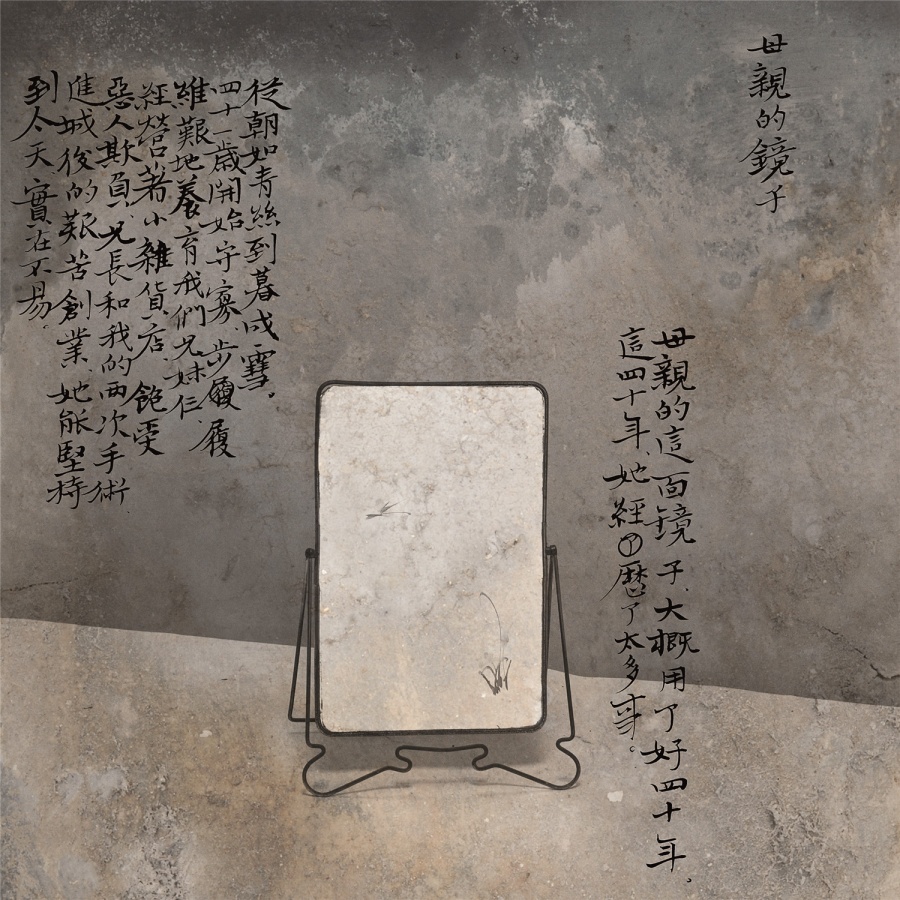 母親的鏡子
母親的這面鏡子、大概用了好四十年、
這四十年、她經歷了太多事。
從朝如青絲到暮成雪。
四十一歲開始守寡、步履履
維艱地養育我們兄妹仨、
經營著小雜貨店、飽受
惡人欺負、兄長和我的兩次手術、
進城後的艱苦創業、她能堅持
到今天實在不易。